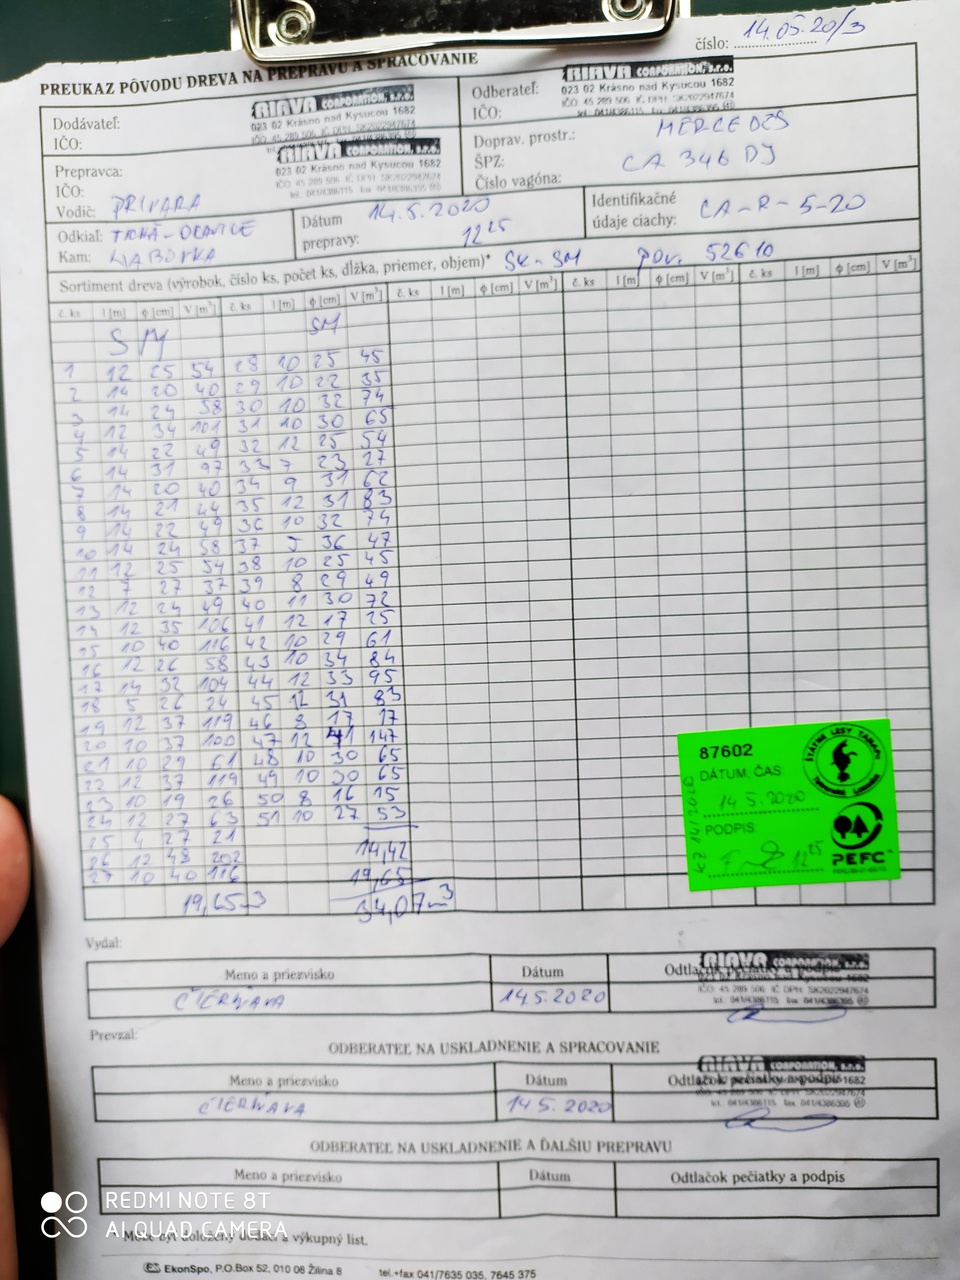 číslo: 14.05.20/3
PREUKAZ PÔVODU DREVA NA PREPRAVU A SPRACOVANIE
Dodávateľ:
IČO:
RIAVA CORPORATION, s.r.o.
023 02 Krásno nad Kysucou 1682
IČO 45 289 506 IČ DPH: SK2022947674
Odberateľ:
IČO:
RIAVA CORPORATION, s.r.o.
023 02 Krásno nad Kysucou 1682
IČO 45 289 506 IČ DPH: SK2022947674
Prepravca:
IČO:
RIAVA CORPORATION, s.r.o.
023 02 Krásno nad Kysucou 1682
IČO 45 289 506 IČ DPH: SK2022947674
Vodič: PRIVARA
Doprav. prostr.: MERCEDES
ŠPZ: CA 346 DJ
Číslo vagóna:
Odkiaľ: TICHÁ-ORAVICE
Kam:
Dátum prepravy: 14.5.2020 12 25
Identifikačné údaje ciachy: CA-R-5-20
Sortiment dreva (výrobok, číslo ks, počet ks, dĺžka, priemer, objem)* SK-SM POV. 52610
č. ks l [m] ϕ [cm] V [m³] č. ks l [m] ϕ [cm] V [m³] č. ks l [m] ϕ [cm] V [m³] č. ks l [m] ϕ [cm] V [m³] č. ks l [m] ϕ [cm] V [m³]
SM SM
1 12 25 54 28 10 25 45
2 14 20 40 29 10 22 35
3 14 24 58 30 10 32 74
4 12 34 101 31 10 30 65
5 14 22 49 32 12 25 54
6 14 31 97 33 7 23 27
7 14 20 40 34 9 31 62
8 14 21 44 35 12 31 83
9 14 22 49 36 10 32 74
10 14 24 58 37 5 36 47
11 12 25 54 38 10 25 45
12 7 27 37 39 8 29 49
13 12 24 49 40 11 30 72
14 12 35 106 41 12 17 25
15 10 40 116 42 10 29 61
16 12 26 58 43 10 34 84
17 14 32 104 44 12 33 95
18 5 26 24 45 12 31 83
19 12 37 119 46 8 17 17
20 10 37 100 47 12 41 147
21 10 29 61 48 10 30 65
22 12 37 119 49 10 30 65
23 10 19 26 50 8 16 15
24 12 27 63 51 10 27 53
25 4 27 21
26 12 48 202 14,42
27 10 40 116 19,65
19,65m3 34,07m3
87602
DÁTUM, ČAS:
14.5.2020
PODPIS:
12 25
ŠTÁTNE LESY TANAPu
PEFC
Vydal:
Meno a priezvisko Dátum Odtlačok pečiatky a podpis
14.5.2020
RIAVA CORPORATION, s.r.o.
023 02 Krásno nad Kysucou 1682
IČO: 45 289 506 IČ DPH: SK2022947674
tel.: 041/4386115 fax: 041/4386395
Prevzal:
ODBERATEĽ NA USKLADNENIE A SPRACOVANIE
Meno a priezvisko Dátum Odtlačok pečiatky a podpis
14.5.2020
RIAVA CORPORATION, s.r.o.
IČO: 45 289 506 IČ DPH: SK2022947674
tel.: 041/4386115 fax: 041/4386395
ODBERATEĽ NA USKLADNENIE A ĎALŠIU PREPRAVU
Meno a priezvisko Dátum Odtlačok pečiatky a podpis
Môže byť doložený dodací a výkupný list.
EkonSpo, P.O.Box 52, 010 08 Žilina 8 tel.+fax 041/7635 035, 7645 375
REDMI NOTE 8T
AI QUAD CAMERA